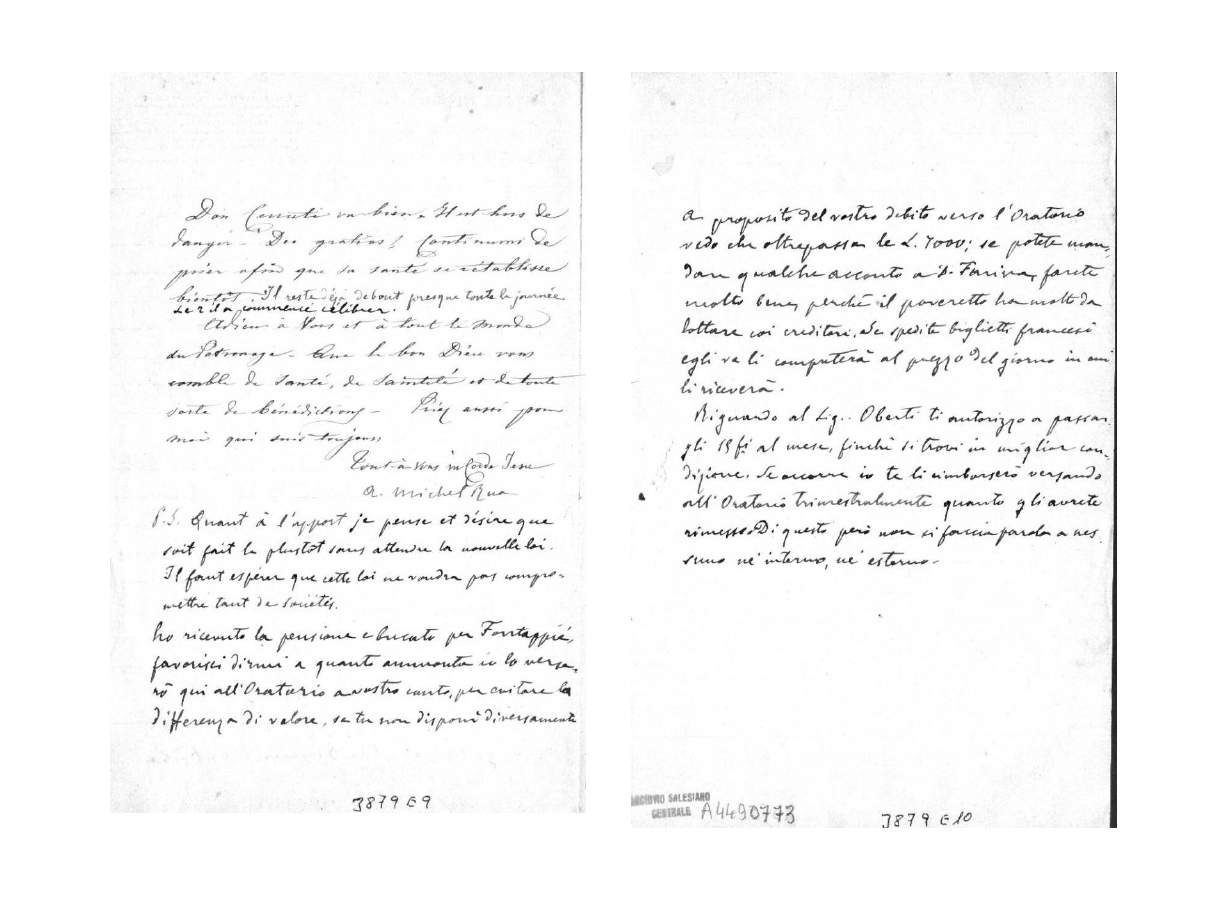 Don Cerruti va bien. Il est hors de
danger. Deo gratias! Continuons de
prier afin que sa santé se rétablisse
bientôt. Il reste déjà debout presque toute la journée
Le 2 il a commencé célébrer.
Adieu à Vous et à tout le monde
du Patronage. Que le bon Dieu vous
comble de Santé, de Sainteté et de toute
sorte de bénédictions. Priez aussi pour
moi qui suis toujours
Tout à vous in Corde Jesu
a. Michel Rua
P.S. Quant à l'apport je pense et désire que
soit fait le plustôt sans attendre la nouvelle loi.
Il faut espérer que cette loi ne voudra pas compro-
mettre tant de sociétés.
ho ricevuto la pensione e bucato per Fontappié,
favorisci dirmi a quanto ammonta io lo verse-
rò qui all'Oratorio a vostro conto, per evitare la
differenza di valore, se tu non disponi diversamente
3879 E 9
A proposito del vostro debito verso l'Oratorio
vedo che oltrepassa le L. 7000; se potete man-
dare qualche acconto a D. Farina, farete
molto bene, perchè il poveretto ha molto da
lottare coi creditori. Se spedite biglietti francesi
egli ve li computerà al prezzo del giorno in cui
li riceverà.
Riguardo al Sig. Oberti ti autorizzo a passar-
gli 15 f. al mese, finchè si trovi in miglior con-
dizione. Se occorre io te li rimborserò versando
all'Oratorio trimestralmente quanto gli avrete
rimesso. Di questo però non si faccia parola a nes-
suno nè interno, nè esterno.
ARCHIVIO SALESIANO
CENTRALE A4490773
3879 E 10